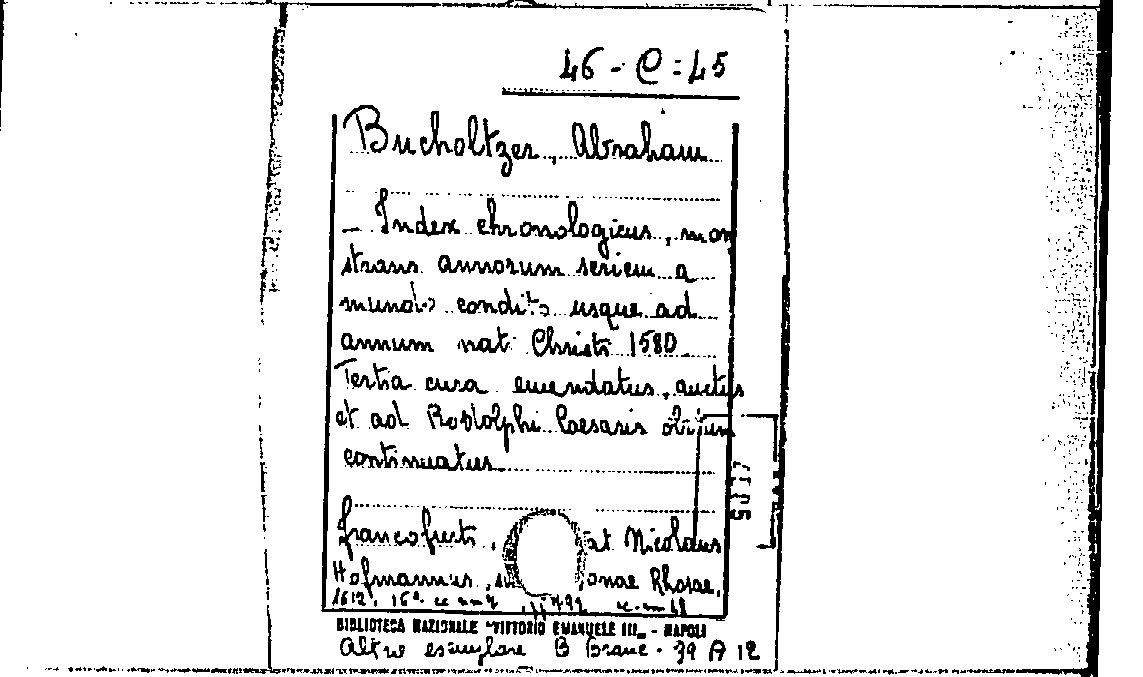 46 - C : 45
Bucholtzer, Abraham
- Index chronologicus, mon
strans annorum seriem a
mundo condito usque ad
annum nat. Christi 1580
Tertia cura emendatus, auctus
et ad Rodolphi Caesaris obitum
continuatus
francofurti, at Nicolaus
Hofmannus, onae Rhosae,
1612. 16°
BIBLIOTECA NAZIONALE "VITTORIO EMANUELE III" - NAPOLI
Altro esemplare B Branc. 39 A 12